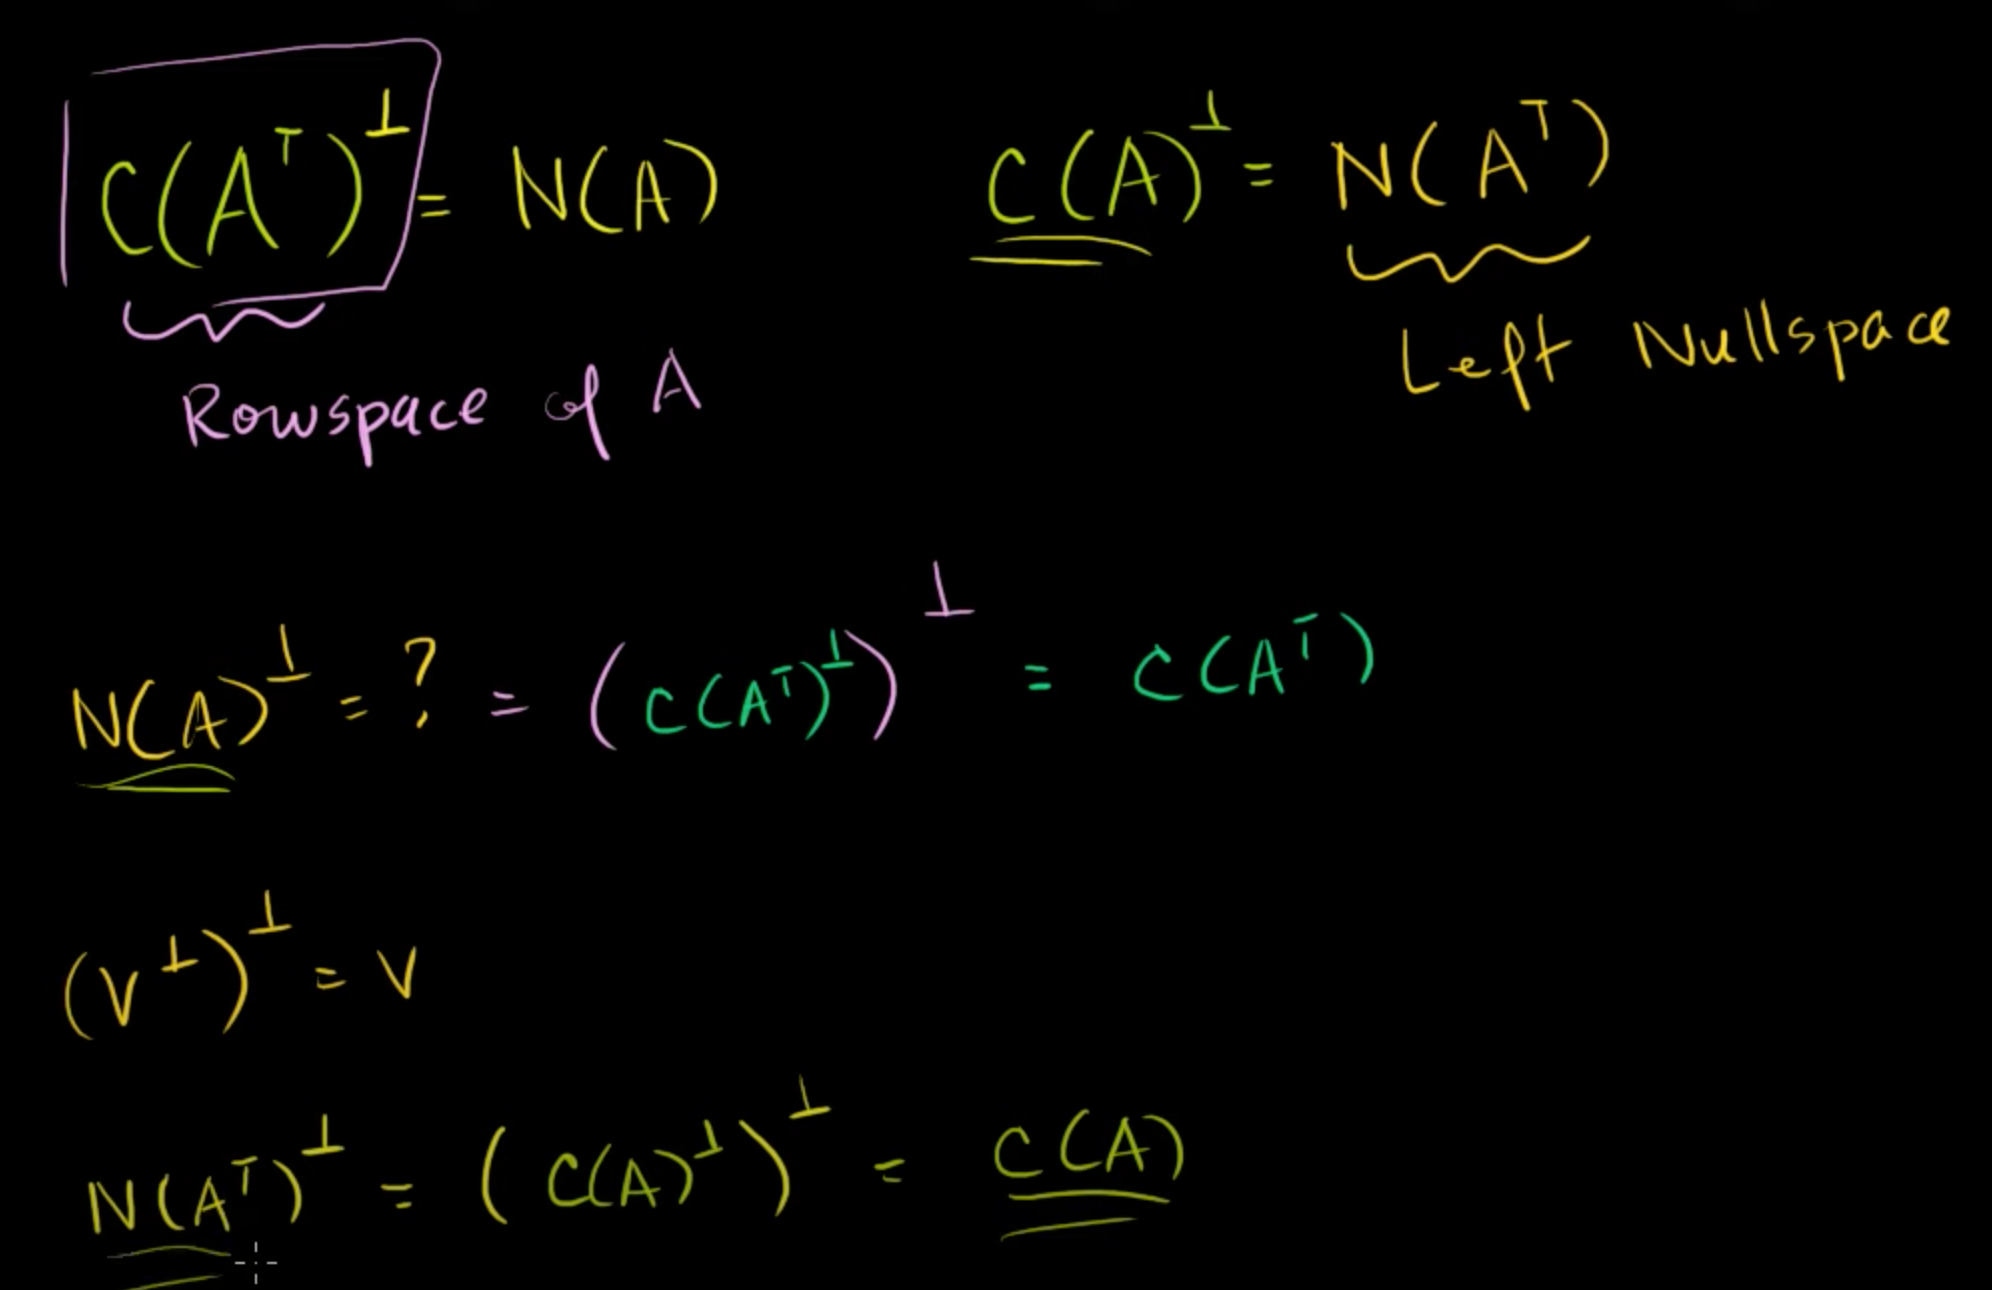 C(Aᵀ)^⊥ = N(A)
C(A)^⊥ = N(Aᵀ)
Rowspace of A
Left Nullspace
N(A)^⊥ = ? = (C(Aᵀ)^⊥)^⊥ = C(Aᵀ)
(V^⊥)^⊥ = V
N(Aᵀ)^⊥ = (C(A)^⊥)^⊥ = C(A)